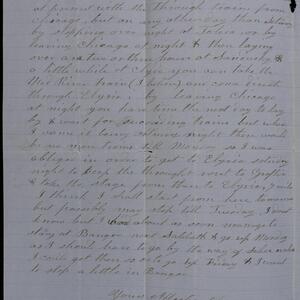 at present with the through trains from
Chicago, but on any other day than
by stopping over night at Toledo or by
leaving Chicago at night & then laying
over a or three hours at Sandusky &
a little while at Clyde you can take the
train (Toledo) and come
through Elyria, by leaving Chicago
at night you have time the next day to lay
by & wait for trains but when
I came it being night there would
be no more trains till Monday so I was
obliged in order to get to Elyria
night to keep the through route to Grafton
& take the stage from there to Elyria, 7 miles
I think I shall start from here tomorrow
but possibly may stop till Tuesday, I don't
know but I almost as soon
stay at Bangor over Sabbath & go up Monday
as I should have to go by the way of
I could get there so as to go up Friday & I want
to stop a little in Bangor
Yours Albert